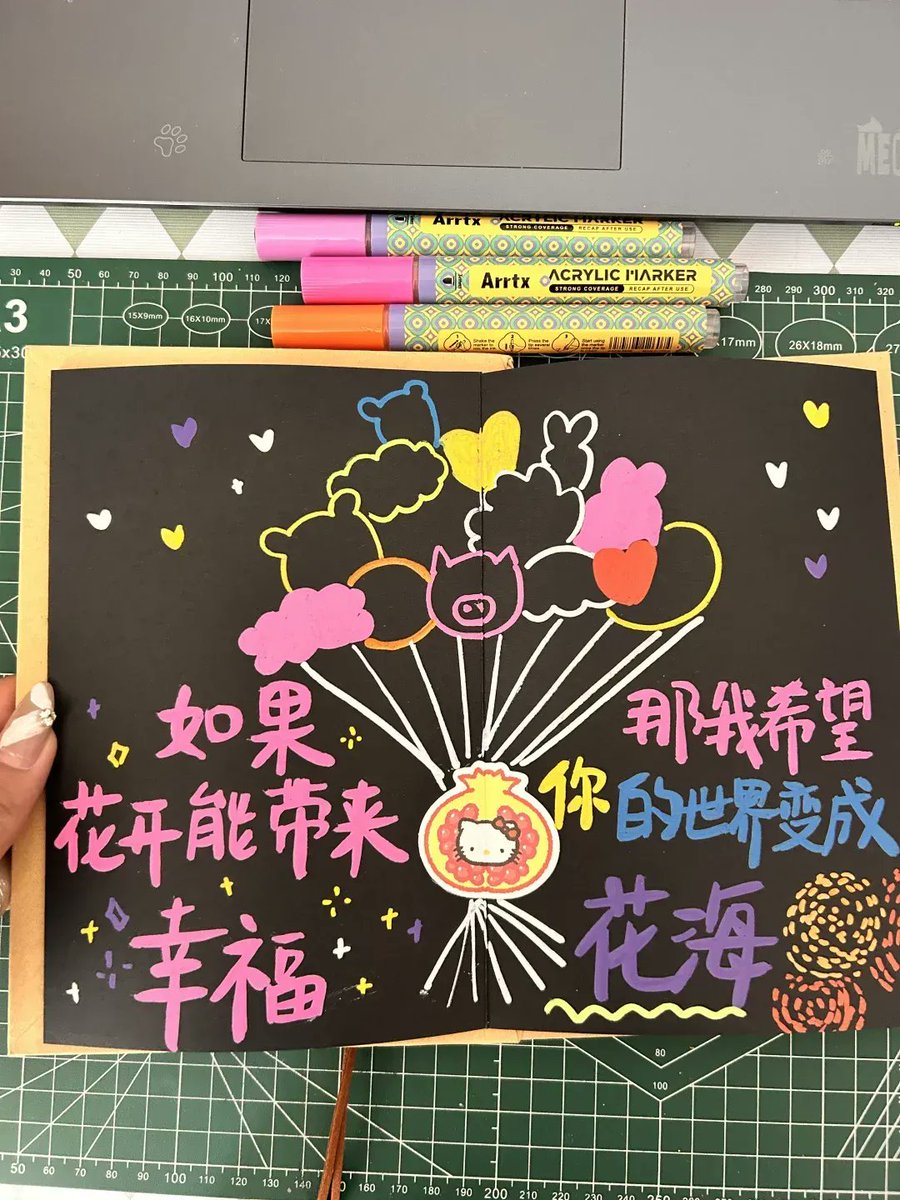 MEC
Arrtx ACRYLIC MARKER
STRONG COVERAGE RECAP AFTER USE
Arrtx ACRYLIC MARKER
STRONG COVERAGE RECAP AFTER USE
30 40 50 60 70 80 90 100
280 290 300 310 320
15X9mm 16X10mm
26X18mm
如果
花开能带来
幸福
那我希望
你的世界变成
花海
80
100
50 60 70 80 90 100 110 120 130 140 150 160 170 180 190 200 210 220 230 240 250 260 270 280 290 300 310